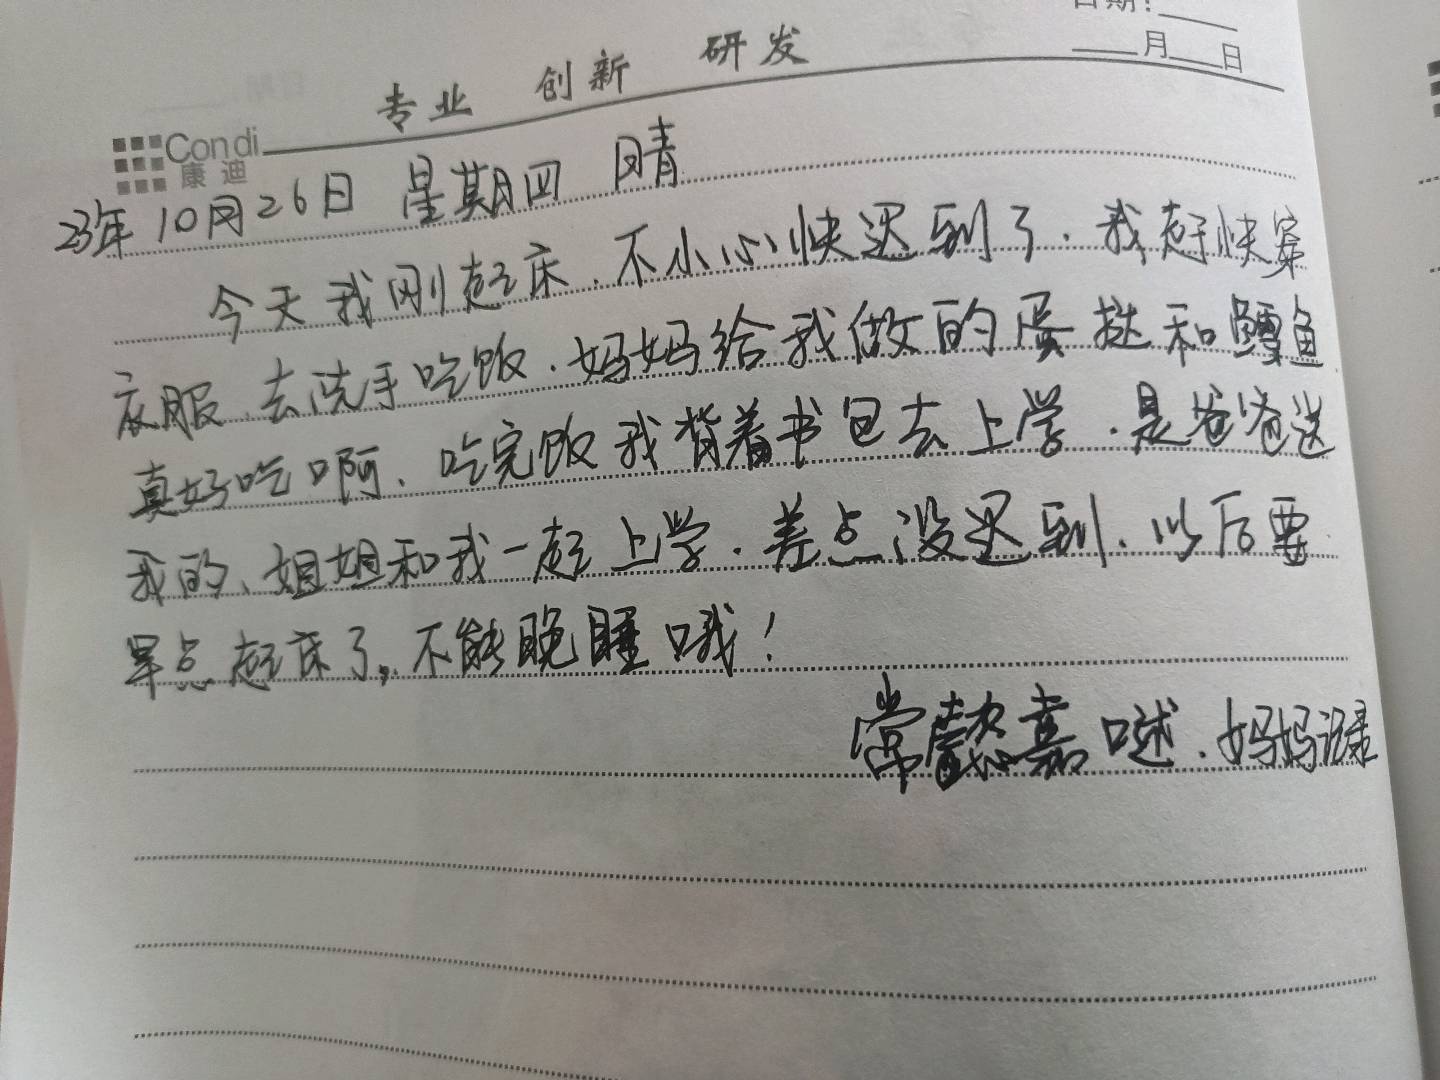 日期：
月 日
专业 创新 研发
Condi
康迪
23年10月26日 星期四 晴
今天我刚起床，不小心快迟到了．我赶快穿
衣服．去洗手吃饭．妈妈给我做的蛋挞和鳕鱼
真好吃啊、吃完饭我背着书包去上学．是爸爸送
我的、姐姐和我一起上学．差点没迟到、以后要
早点起床了，不能晚睡哦！
常懿嘉口述．妈妈记录